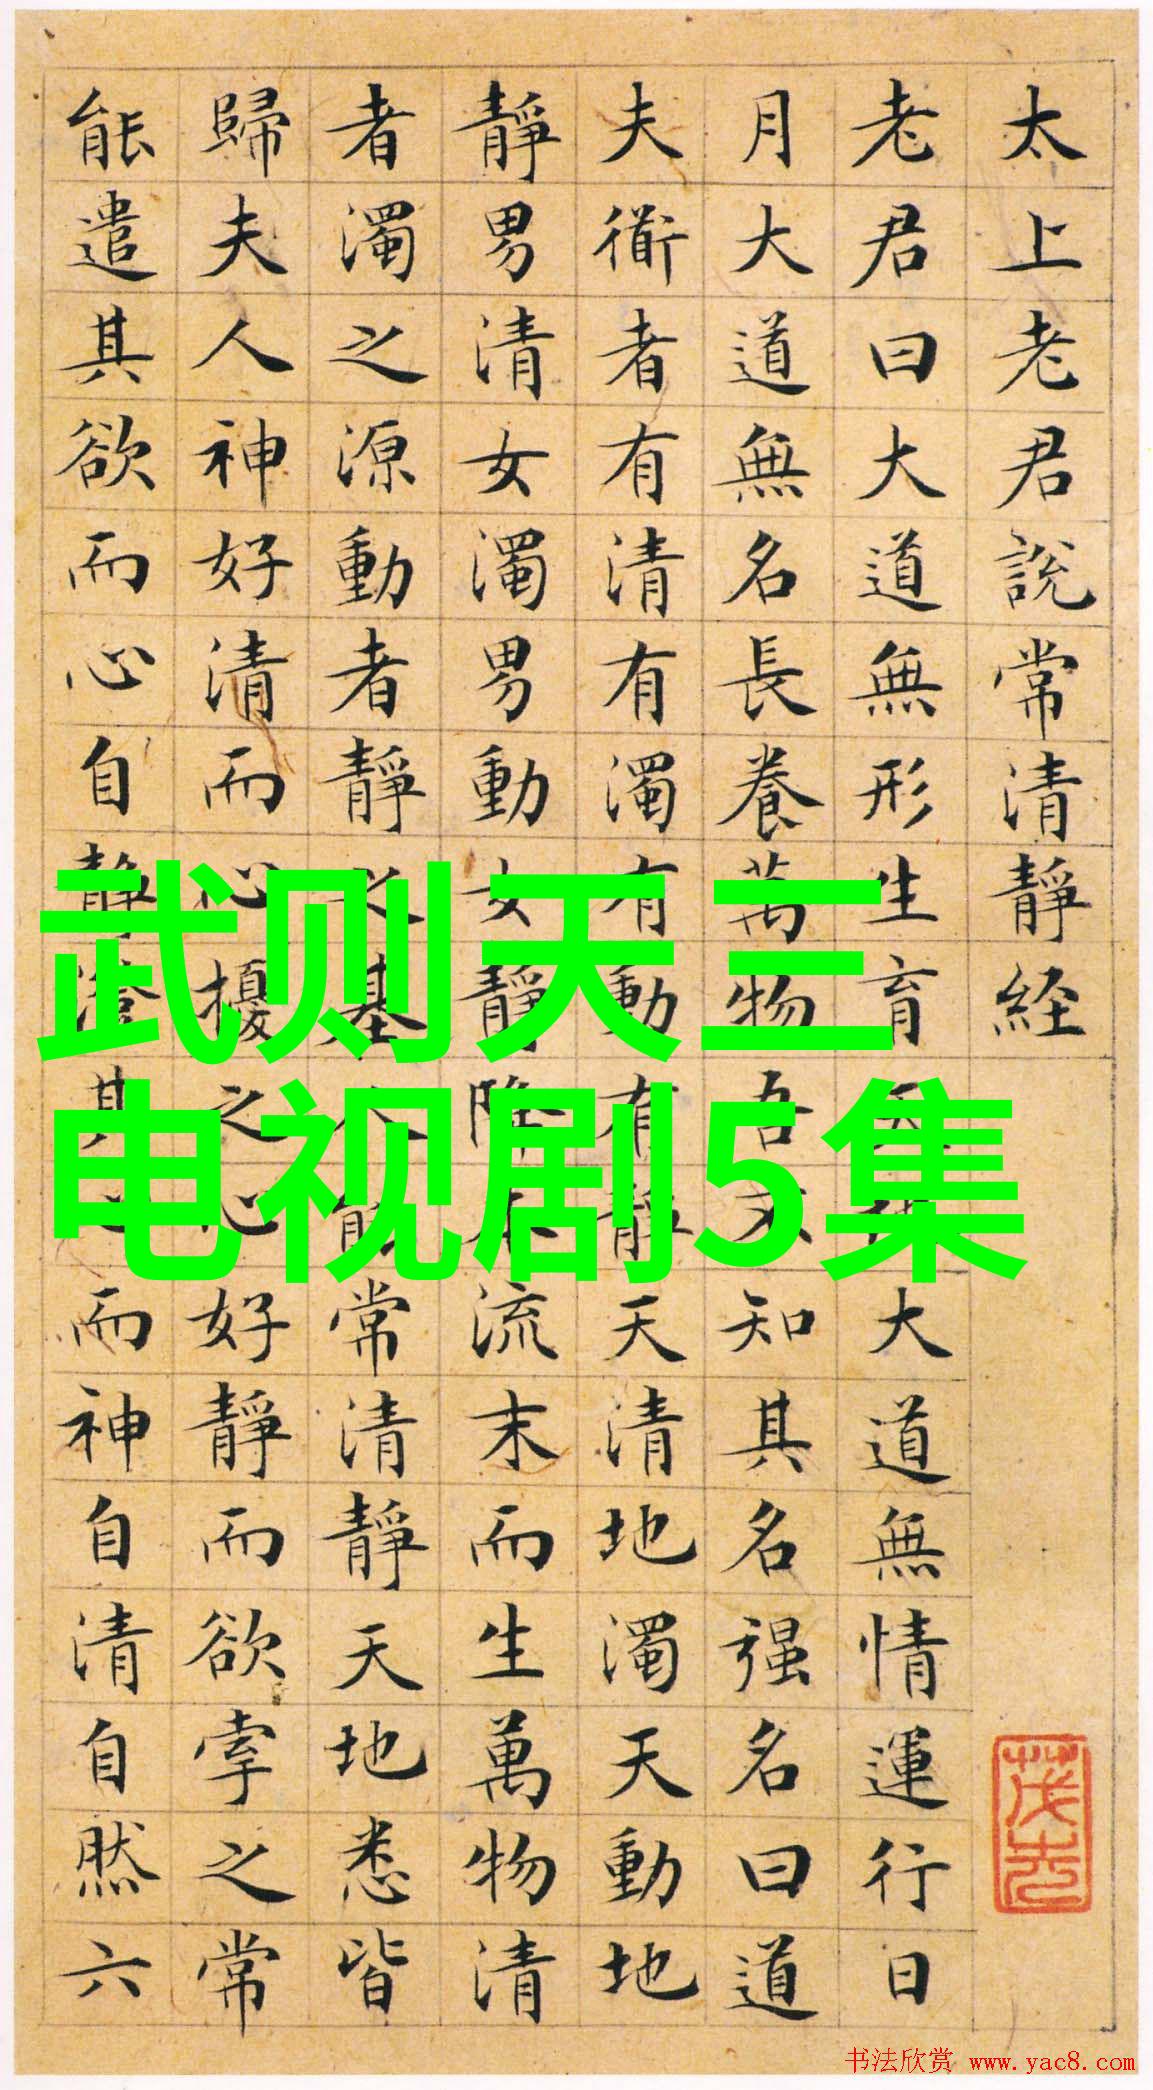 太上老君說常清靜経
老君曰大道無形生育天地大道無情運行日
月大道無名長養萬物吾不知其名强名曰道
夫衜者有清有濁有動有靜天清地濁天動地
靜男清女濁男動女靜降本流末而生萬物清
者濁之源動者靜之基人能常清靜天地悉皆
歸夫人神好清而心擾之心好靜而欲牽之常
能遣其欲而心自靜澄其心而神自清自然六
武则天三
电视剧5集
书法欣赏 www.yac8.com